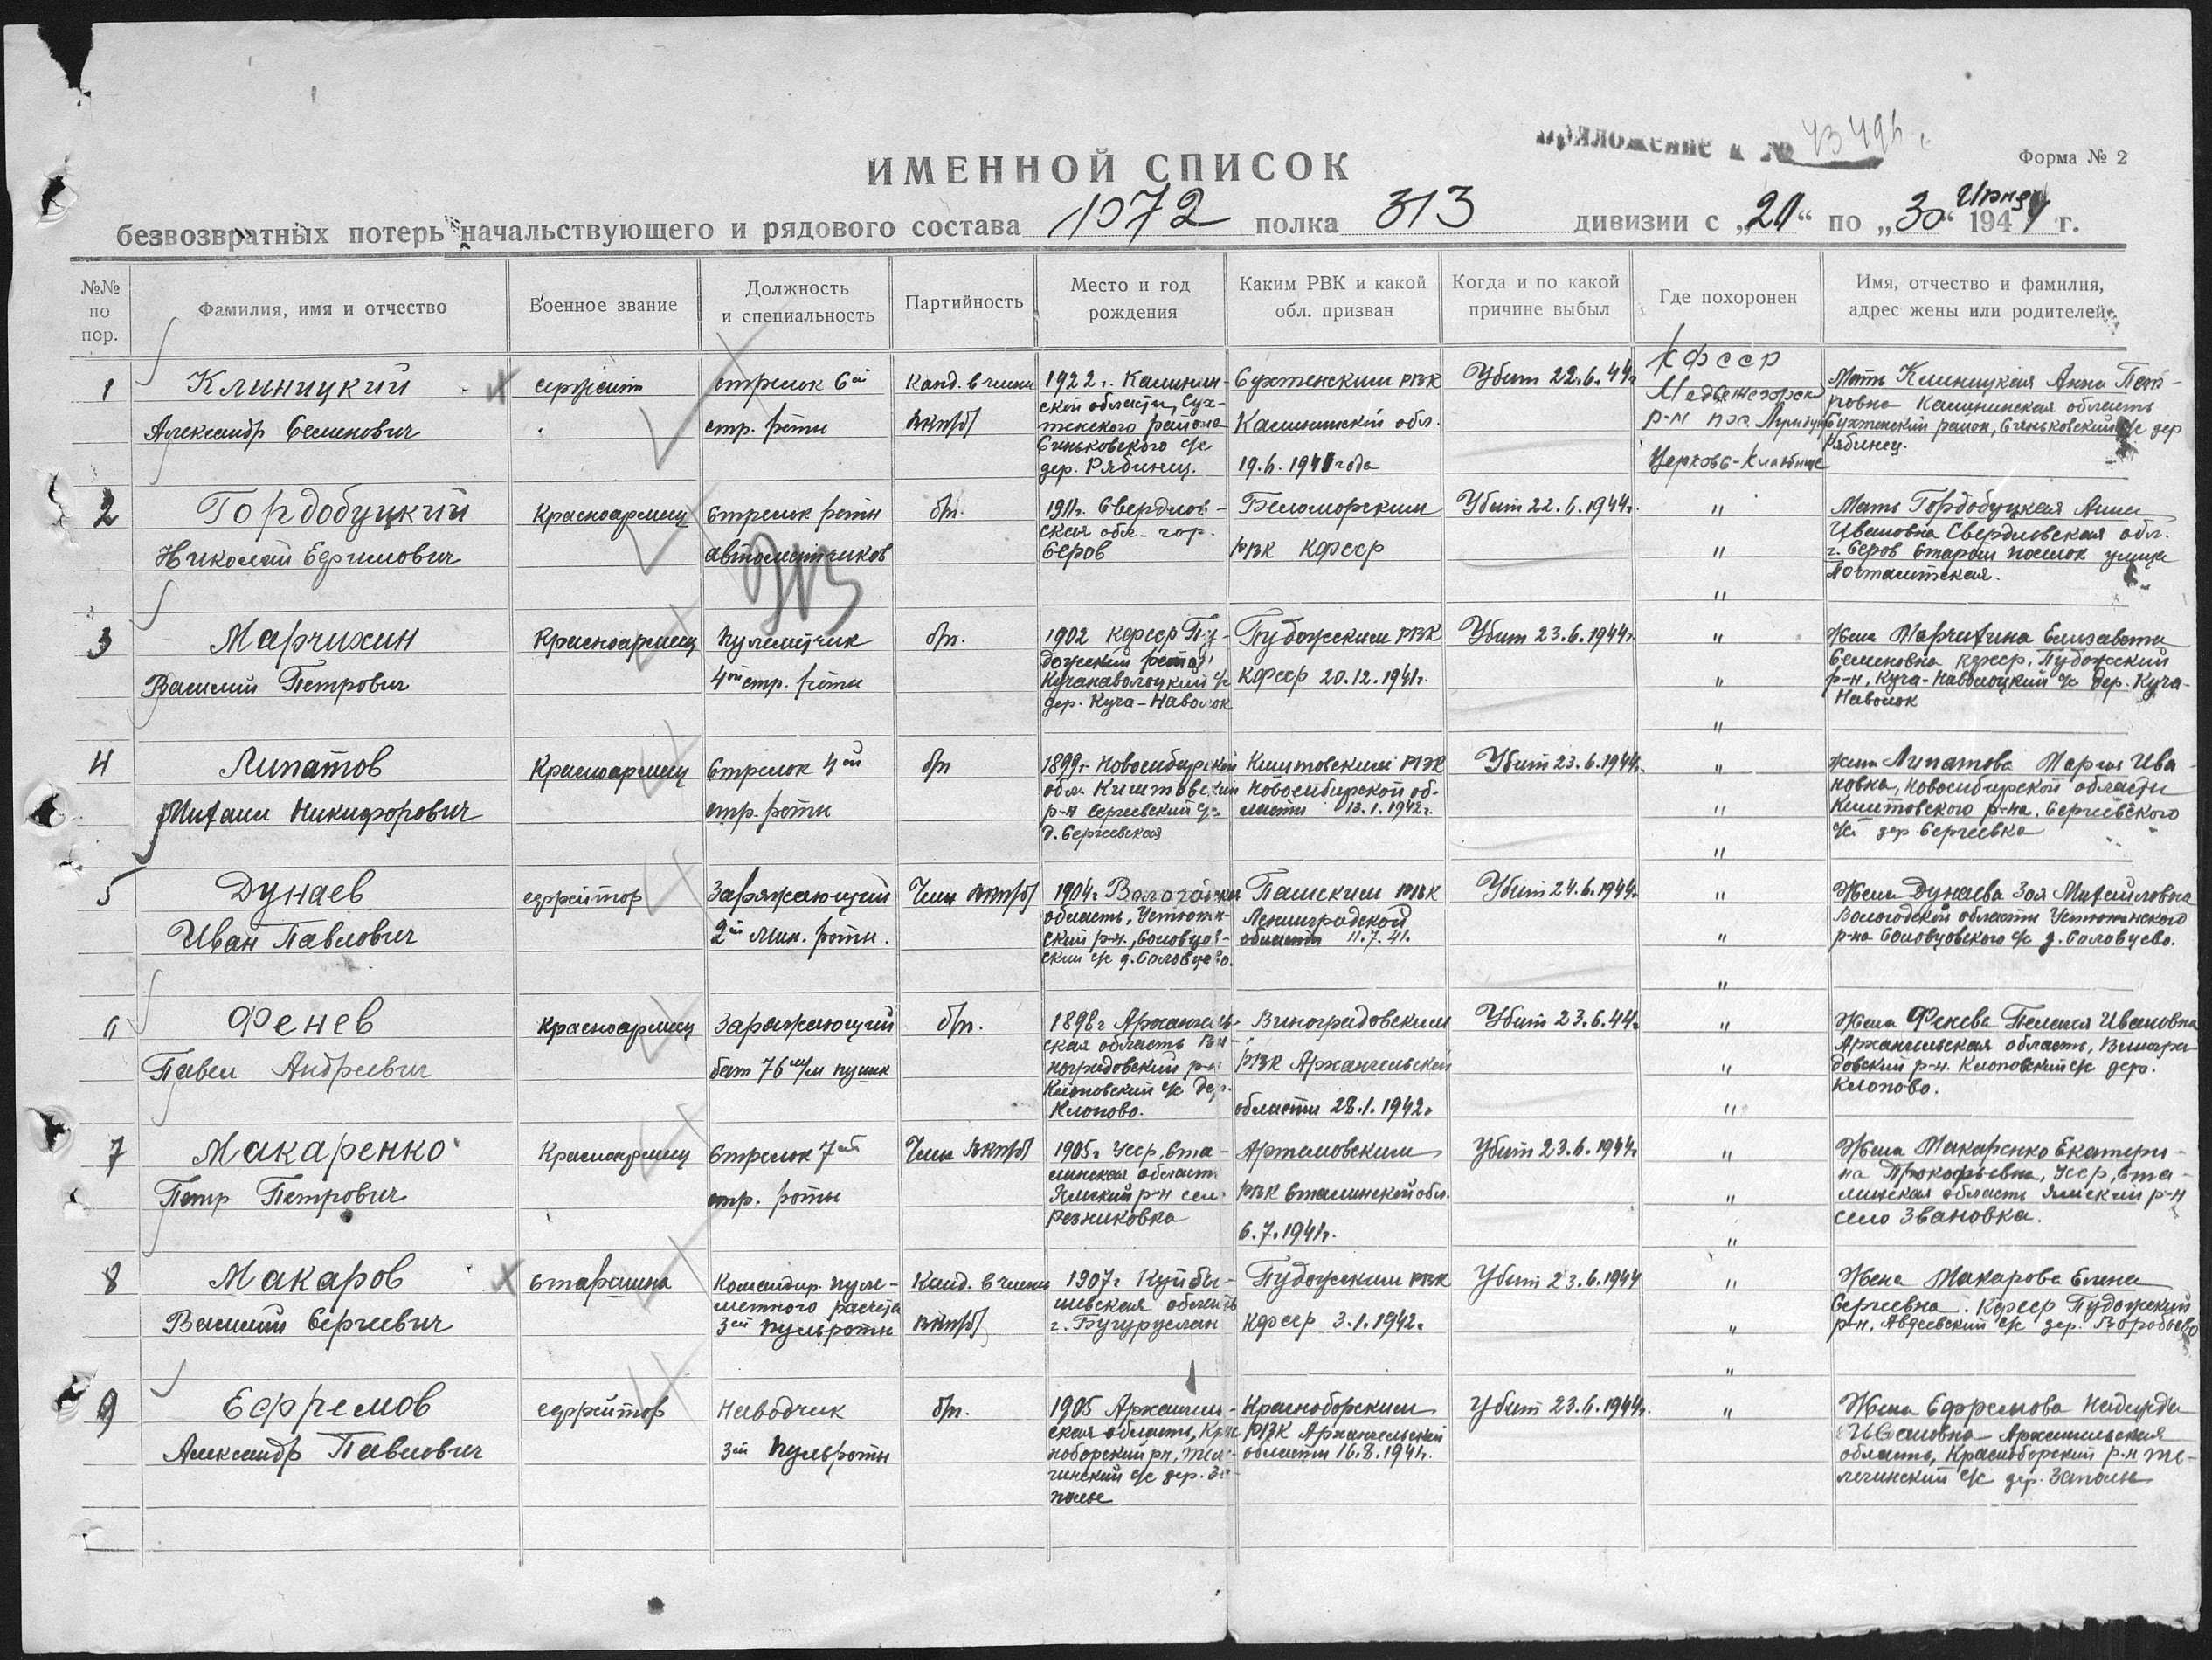 Приложение к №
Форма № 2
ИМЕННОЙ СПИСОК
безвозвратных потерь начальствующего и рядового состава 1072 полка 313 дивизии с „21“ по „30“ Июня 1944 г.
№№ по пор.
Фамилия, имя и отчество
Военное звание
Должность и специальность
Партийность
Место и год рождения
Каким РВК и какой обл. призван
Когда и по какой причине выбыл
Где похоронен
Имя, отчество и фамилия, адрес жены или родителей
1
Клиницкий
Александр Семенович
сержант
стрелок 6ой
стр. роты
Канд. в члены
ВКП/б/
1922 г. Калинин-
ской области, Сух-
тенского района
Сеньковского с/с
дер. Рябинец.
РВК
Калининской обл.
19.6.1941 года
Убит 22.6.44г
КФССР
р-н
Церковь-Кладбище
Мать Клиницкая Анна Пет-
ровна Калининская область
район, Сеньковский с/с дер
Рябинец.
2
Гордобуцкий
Николай Ефимович
Красноармеец
Стрелок роты
автоматчиков
б/п.
1911г. Свердлов-
ская обл. гор.
Серов
Беломорским
РВК КФССР
Убит 22.6.1944г.
"
"
"
Мать Гордобуцкая Анна
Ивановна Свердловская обл.
г. Серов Старый поселок улица
Почтамтская.
3
Марчихин
Василий Петрович
Красноармеец
Пулеметчик
4ой стр. роты
б/п.
1902 КФССР Пу-
дожский район
Куганаволоцкий с/с
дер. Куга-Наволок
Пудожским РВК
КФССР 20.12.1941г.
Убит 23.6.1944г.
"
"
"
Жена Марчихина Елизавета
Семеновна КФССР, Пудожский
р-н, Куга-Наволоцкий с/с дер. Куга-
Наволок
4
Липатов
Михаил Никифорович
Красноармеец
Стрелок 4ой
стр. роты
б/п
1899г. Новосибирской
обл. Киштовский
р-н Сергеевский с/с
д. Сергеевская
Киштовским РВК
Новосибирской об-
ласти 13.1.1942г.
Убит 23.6.1944г.
"
"
"
жена Липатова Мария Ива-
новна, Новосибирской области
Киштовского р-на, Сергеевского
с/с дер. Сергеевка
5
Дунаев
Иван Павлович
ефрейтор
Заряжающий
2ой Мин. роты.
Член ВКП/б/
1904г. Вологодская
область, Устюжен-
ский р-н., Соловцов-
ский с/с д. Соловцево.
Пашским РВК
Ленинградской
области 11.7.41.
Убит 24.6.1944г.
"
"
"
Жена Дунаева Зоя Михайловна
Вологодской области Устюженского
р-на Соловцовского с/с д. Соловцево.
6
Фенев
Павел Андреевич
Красноармеец
Заряжающий
бат 76 м/м пушек
б/п.
1898г Архангель-
ская область Ви-
ноградовский р-н
Клоновский с/с Дер.
Клоново.
Виноградовским
РВК Архангельской
области 28.1.1942г
Убит 23.6.44г
"
"
"
Жена Фенева Пелагея Ивановна
Архангельская область, Виногра-
довский р-н. Клоновский с/с дер.
Клоново.
7
Макаренко
Петр Петрович
Красноармеец
Стрелок 7ой
стр. роты
Член ВКП/б/
1905г УССР, Ста-
линская область
Ямский р-н село
Резниковка
Артемовским
РВК Сталинской обл.
6.7.1941г.
Убит 23.6.1944г
"
"
"
Жена Макаренко Екатери-
на Прокофьевна, УССР, Ста-
линская область Ямский р-н
село Звановка.
8
Макаров
Василий Сергеевич
Старшина
Командир пуле-
метного расчета
3ей пульроты
Канд. в члены
ВКП/б/
1907г Куйбы-
шевская область
г. Бугуруслан
Пудожским РВК
КФССР 3.1.1942г
Убит 23.6.1944
"
"
"
Жена Макарова Елена
Сергеевна. КФССР Пудожский
р-н, Авдеевский с/с дер. Воробьево
9
Ефремов
Александр Павлович
ефрейтор
Наводчик
3ей пульроты
б/п.
1905 Архангель-
ская область, Крас
ноборский р-н, Теле-
гинский с/с дер. За-
полье
Красноборским
РВК Архангельской
области 16.8.1941г.
Убит 23.6.1944г.
"
Жена Ефремова Надежда
Ивановна Архангельская
область, Красноборский р-н Те-
легинский с/с дер. Заполье